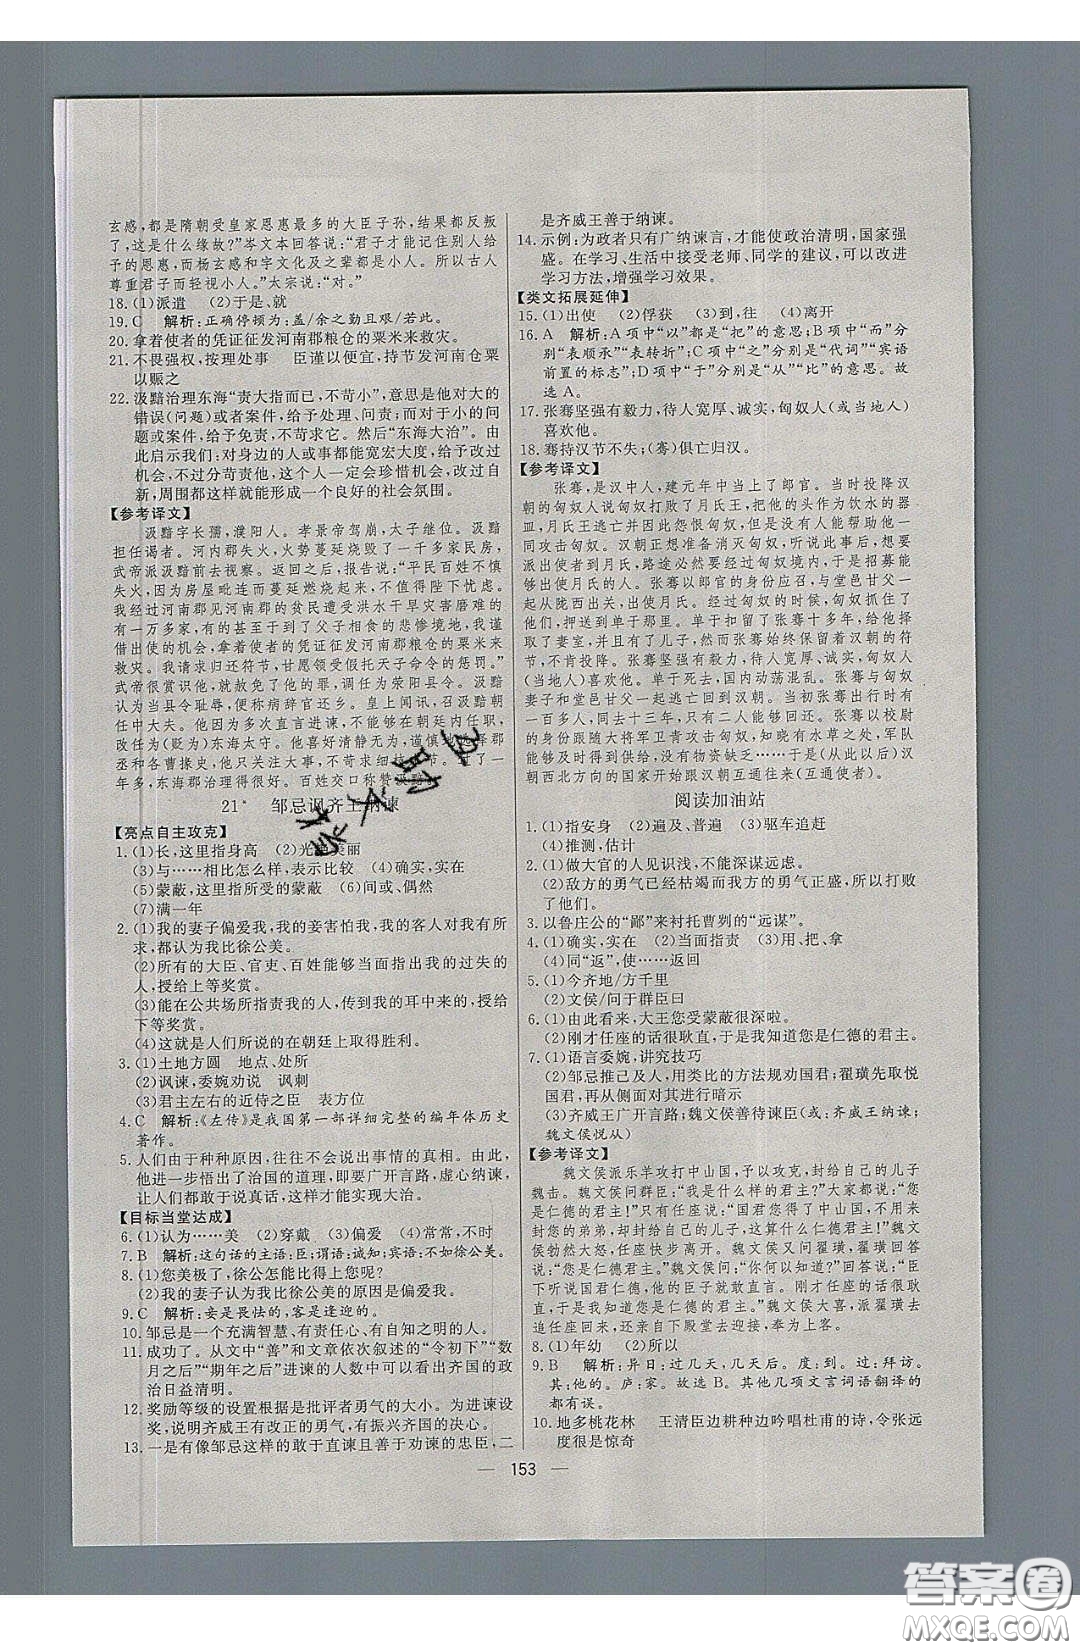 玄感,都是隋朝受皇家恩惠最多的大臣子孙,结果都反叛
了,这是什么缘故?岑文本回答说:“君子才能记住别人给
予的恩惠,而杨玄感和宇文化及之辈都是小人。所以古人
尊重君子而轻视小人。”太宗说:“对。”
18. (1)派遣　(2)于是、就
19. C　解析:正确停顿为:盖/余之勤且艰/若此。
20. 拿着使者的凭证征发河南郡粮仓的粟米来救灾。
21. 不畏强权,按理处事　臣谨以便宜,持节发河南仓粟
以赈之
22. 汲黯治理东海“责大指而已,不苛小”,意思是他对大的
错误(问题)或者案件,给予处理、问责;而对于小的问
题或案件,给予免责,不苛求它。然后“东海大治”。由
此启示我们:对身边的人或事都能宽宏大度,给予改过
机会,不过分苛责他,这个人一定会珍惜机会,改过自
新,周围都这样就能形成一个良好的社会氛围。
【参考译文】
汲黯字长孺,濮阳人。孝景帝驾崩,太子继位。汲黯
担任谒者。河内郡失火,火势蔓延烧毁了一千多家民房,
武帝派汲黯前去视察。返回后,报告说:“平民百姓不慎
失火,因为房屋毗连而蔓延燃烧起来,不值得忧虑。
我经过河南郡见河南郡的贫民遭受洪水干旱灾害磨难的
有一万多家,以至于出现了父子相食的悲惨境地,我借
出使的机会,拿着使者的凭证征发河南郡粮仓的粟米来
救灾。我请求归还符节,甘愿领受假托天子命令的惩罚。”
武帝很赏识汲黯,就免了他的罪,调任为荥阳县令。汲黯
耻任县令,称病辞官还乡。皇上闻讯,召汲黯朝任
中大夫。他因为多次直言进谏,不能够在朝廷内任职,
改任为(贬为)东海太守。他喜好清静无为,谨慎地选择郡
丞和各曹掾史。他只关注大事,不苛求细枝末节。一
年多,东海郡治理得很好。百姓交口称赞汲黯。
21*　邹忌讽齐王纳谏
【亮点自主攻克】
1. (1)长,这里指身高　(2)光艳美丽
(3)与……相比怎么样,表示比较　(4)确实,实在
(5)蒙蔽,这里指所受的蒙蔽　(6)间或、偶然
(7)满一年
2. (1)我的妻子偏爱我,我的妾害怕我,我的客人对我有所
求,都认为我比徐公美。
(2)所有的大臣、官吏、百姓能够当面指出我的过失的
人,授给上等奖赏。
(3)能在公共场所指责我的人,传到我的耳中来的,授给
下等奖赏。
(4)这就是人们所说的在朝廷上取得胜利。
3. (1)土地方圆　地点、处所
(2)讽谏,委婉劝说　讽刺
(3)君主左右的近侍之臣　表方位
4. C　解析:《左传》是我国第一部详细完整的编年体历史
著作。
5. 人们由于种种原因,往往不会说出事情的真相。由此,他
进一步悟出了治国的道理,即要广开言路,虚心纳谏,
让人们都敢于说真话,这样才能实现大治。
【目标当堂达成】
6. (1)认为……美　(2)穿戴　(3)偏爱　(4)常常,不时
7. B　解析:这句话的主语:臣;谓语:诚知;宾语:不如徐公美。
8. (1)您美极了,徐公怎能比得上您呢?
(2)我的妻子认为我比徐公美的原因是偏爱我。
9. C　解析:妾是畏怯的,客是逢迎的。
10. 邹忌是一个充满智慧、有责任心、有自知之明的人。
11. 成功了。从文中“善”和文章依次叙述的“令初下”“数
月之后”“期年之后”进谏的人数中可以看出齐国的政
治日益清明。
12. 奖励等级的设置根据是批评者勇气的大小。这样的赏
设,说明齐威王有改正的勇气,有振兴齐国的决心。
13. 一是有像邹忌这样的敢于直谏且善于劝谏的忠臣,二
是齐威王善于纳谏。
14. 示例:为政者只有广纳谏言,才能使政治清明,国家强
盛。在学习、生活中接受老师、同学的建议,可以改进
学习方法,增强学习效果。
【类文拓展延伸】
15. (1)出使　(2)俘获　(3)到,往　(4)离开
16. A　解析:A项中“以”都是“把”的意思;B项中“而”分
别“表顺承”“表转折”;C项中“之”分别是“代词”“宾语
前置的标志”;D项中“于”分别是“从”“比”的意思。故
选A。
17. 张骞坚强有毅力,待人宽厚、诚实,匈奴人(或当地人)
喜欢他。
18. 骞持汉节不失;(骞)俱亡归汉。
【参考译文】
张骞,是汉中人,建元年中当上了郎官。当时投降汉
朝的匈奴人说匈奴打败了月氏王,把他的头作为饮水的器
皿,月氏王逃亡并因此怨恨匈奴,但没有人能和他们一
同攻击匈奴。汉朝正想准备消灭匈奴,听说了这件事,就
派出使者联络月氏,路途必然要经过匈奴境内,于是招募
能够出使月氏的人。张骞以郎官的身份应召,与堂邑甘父一
起从陇西出关,出使月氏。经过匈奴的时候,匈奴抓住了
他们,押送到单于那里。单于扣留了张骞十多年,给了他
带了妻室,并有了儿子,然而张骞始终保留着汉朝的符
节,不肯投降。张骞坚强有毅力,待人宽厚、诚实,匈奴人
(当地人)喜欢他。单于死去,国内动荡混乱。张骞与他的匈
奴妻子和堂邑甘父一起逃亡回到汉朝。当初张骞出行时有
一百多人,离去十三年,只有二人能够还回。张骞以校尉
的身份跟随大将军卫青攻击匈奴,知道有水草之处,军队
能够得到好的驻扎饮食,所以没有物资缺乏……于是(从此以后)汉
朝西北方向的国家开始跟汉朝互相往来(互通使者)。
阅读加油站
1. (1)指安身　(2)遍及、普遍　(3)驱车追赶
(4)推测,估计
2. (1)做大官的人见识浅,不能深谋远虑。
(2)敌方的勇气已经枯竭而我方的勇气正盛,所以打败
了他们。
3. 以鲁庄公的“鄙”来衬托曹刿的“远谋”。
4. (1)确实,实在　(2)当面指责　(3)用、把、拿
(4)同“返”,使……返回
5. (1)今齐地/方千里
(2)文侯/问于群臣曰
6. (1)由此看来,大王您受蒙蔽很深啦。
(2)刚才任座的话很耿直,于是我知道您是仁德的君主。
7. (1)语言委婉,讲究技巧
(2)邹忌推己及人,用类比的方法规劝国君;翟璜先取悦
国君,再从侧面对其进行暗示
(3)齐威王广开言路;魏文侯善待谏臣(或:齐威王纳谏;
魏文侯悦从)
【参考译文】
魏文侯派乐羊攻打中山国,予以攻克,封给自己的儿子
魏击。魏文侯问群臣:“我是什么样的君主?”大家都说:“您
是仁德的君主!”只有任座说:“国君您得了中山国,不用来
封您的弟弟,却封给自己的儿子,这算什么仁德君主!”魏文
侯勃然大怒,任座快步离开。魏文侯又问翟璜,翟璜回答
说:“您是仁德君主。”魏文侯问:“你何以知道?”回答说:“臣
下听说国君仁德,他的臣子就敢直言。刚才任座的话很耿
直,于是我知道您是仁德君主。”魏文侯大喜,派翟璜去
追任座回来,还亲自下殿堂去迎接,奉为上客。
8. (1)年幼　(2)所以
9. B　解析:异日:过几天,几天后。度:到。过:拜访。
其:他的。庐:家。故选B。其余几项文言词语翻译的
都有误。
10. 地多桃花林　王清臣边耕种边吟唱杜甫的诗,令张远
度很是惊奇
153
答案圈
MXQE.COM